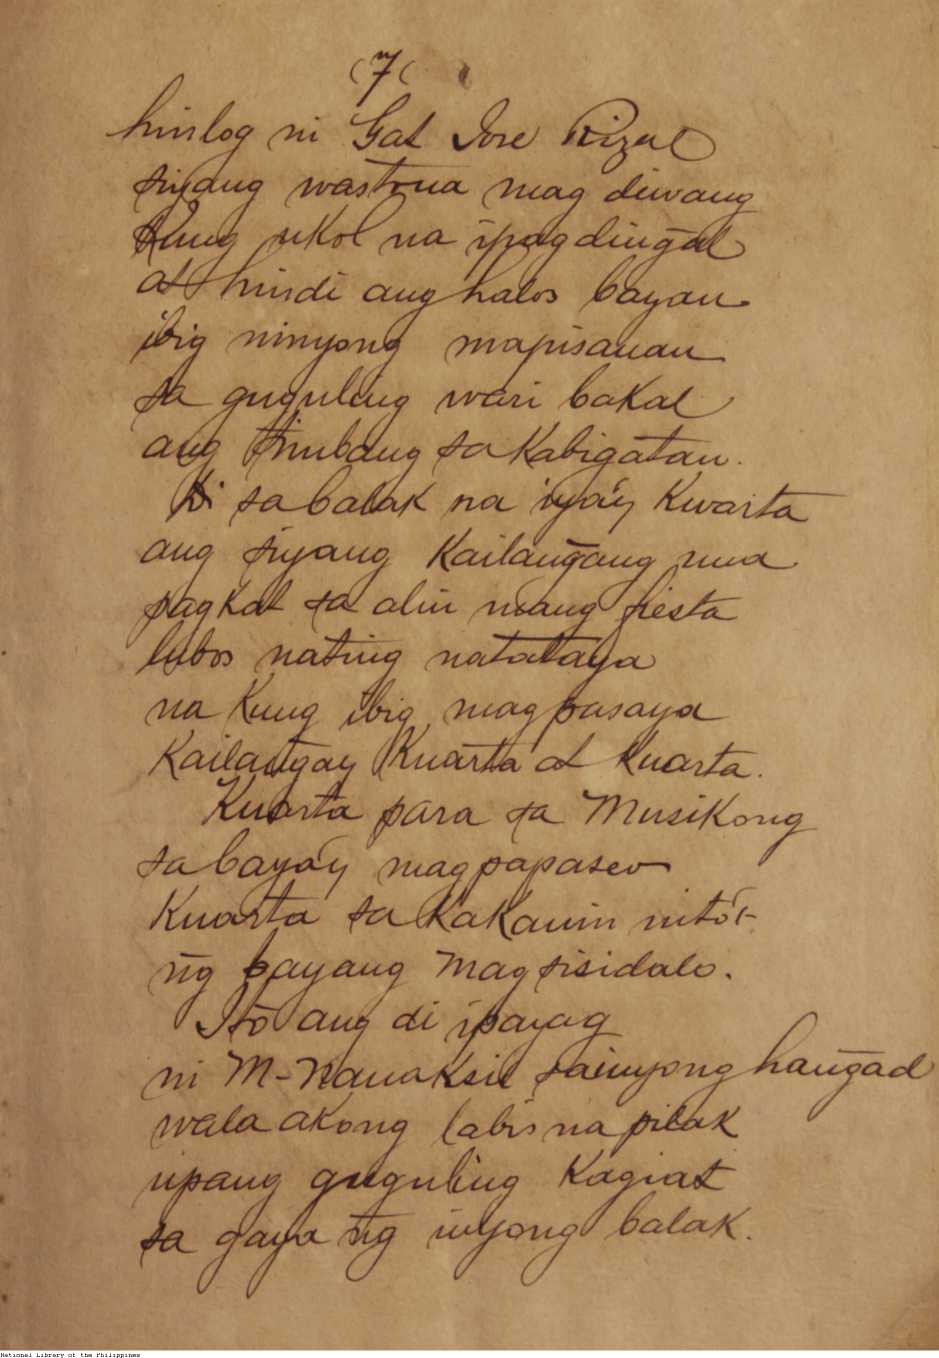 (7(
hinlog ni Gat Jose Rizal
siyang wastoua mag diwang
Kung ukol na ipagdin̄gal
at hindi ang halos bayan
ibig ninyong mapisanan
sa guguling wari bakal
ang timbang sa kabigatan.
Di sa balak na iya'y Kwarta
ang siyang Kailan̄gang una
pagkat sa alin mang fiesta
lubos nating natataya
na Kung ibig magpasaya
Kailan̄gay Kuarta at Kuarta.
Kuarta para sa Musikong
sa bayáy magpapaseo
Kuarta sa kakanin nitó't
n̄g payang magsisidalo.
Itó ang di ipayag
ni M-Nanaksil sainyong han̄gad
wala akong labis na pilak
upang guguling Kagiat
sa gaya n̄g inyong balak.
National Library of the Philippines